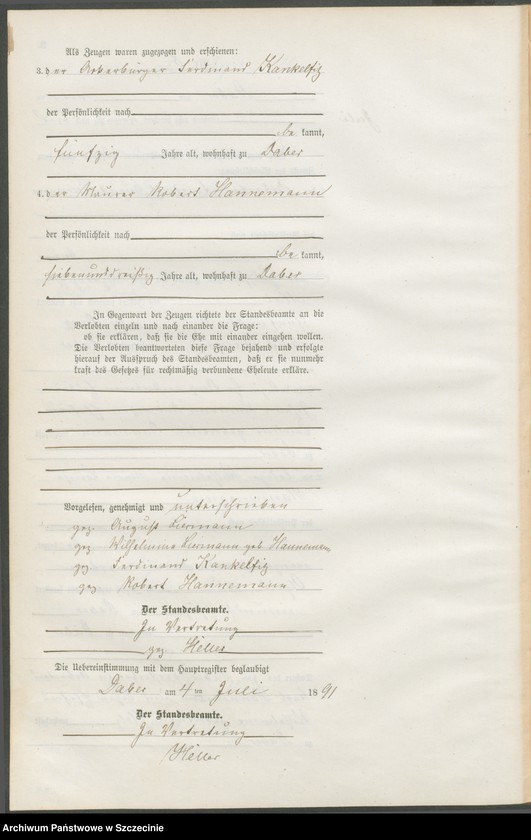 Als Zeugen waren zugezogen und erschienen:
3. der Ackerbürger Ferdinand Kankelfitz
der Persönlichkeit nach
be kannt,
fünfzig Jahre alt, wohnhaft zu Daber
4. der Maurer Robert Hannemann
der Persönlichkeit nach
be kannt,
siebenunddreißig Jahre alt, wohnhaft zu Daber
In Gegenwart der Zeugen richtete der Standesbeamte an die
Verlobten einzeln und nach einander die Frage:
ob sie erklären, daß sie die Ehe mit einander eingehen wollen.
Die Verlobten beantworteten diese Frage bejahend und erfolgte
hierauf der Ausspruch des Standesbeamten, daß er sie nunmehr
kraft des Gesetzes für rechtmäßig verbundene Eheleute erkläre.
Vorgelesen, genehmigt und unterschrieben
gez. August
gez Wilhelmine geb. Hannemann
gez Ferdinand Kankelfitz
gez Robert Hannemann
Der Standesbeamte.
In Vertretung
gez. Heller
Die Uebereinstimmung mit dem Hauptregister beglaubigt
Daber am 4 ten Juli 18 91
Der Standesbeamte.
In Vertretung
Heller
Archiwum Państwowe w Szczecinie